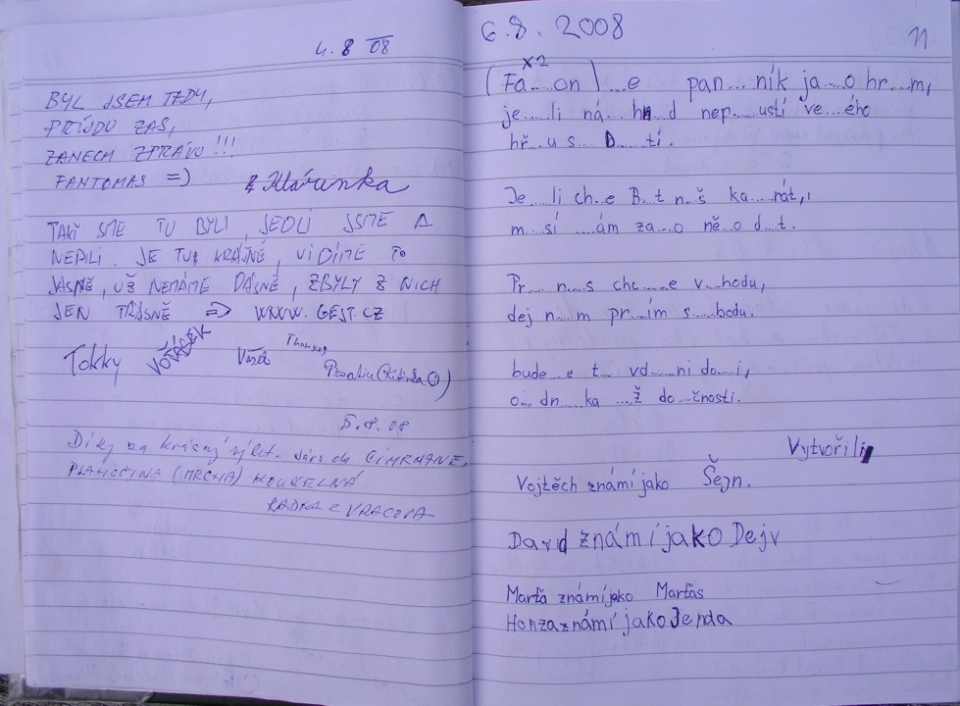 4. 8 08
BYL JSEM TADY,
PŘIJDU ZAS,
ZANECH ZPRÁVU!!!
FANTOMAS =)
& Klárunka
TAKY SME TU BYLI, JEDLI JSME A
NEPILI. JE TU KRÁSNĚ, VIDÍME TO
JASNĚ, UŽ NEMÁME DÁSNĚ, ZBYLY Z NICH
JEN TŘÁSNĚ => WWW.GEJT.CZ
Tokky VOŤÁSEK
5.8.08
Díky za krásný výlet. Jára da CIMRMANE.
PLAHOČINA (MRCHA) KOUZELNÁ
RADKA Z VRACOVA
6.8.2008
11
x2
(Fa....on)...e pan....ník ja...o hr...m,
je....li ná...hn d nep....ustí ve...ého
hř...u s D...tí.
Je...li ch...e B..t n..š ka....rát,
m..sí ....ám za...o ně..o d..t.
Pr... n..s chc....e v...hodu,
dej n...m pr...ím s...bodu.
bude...e t... vd.....ni do..i,
o.. dn....ka ...ž do...čnosti.
Vytvořili
Vojtěch známí jako Šejn.
David známí jako Dejv
Marťa známí jako Marťas
Honza známí jako Jenda